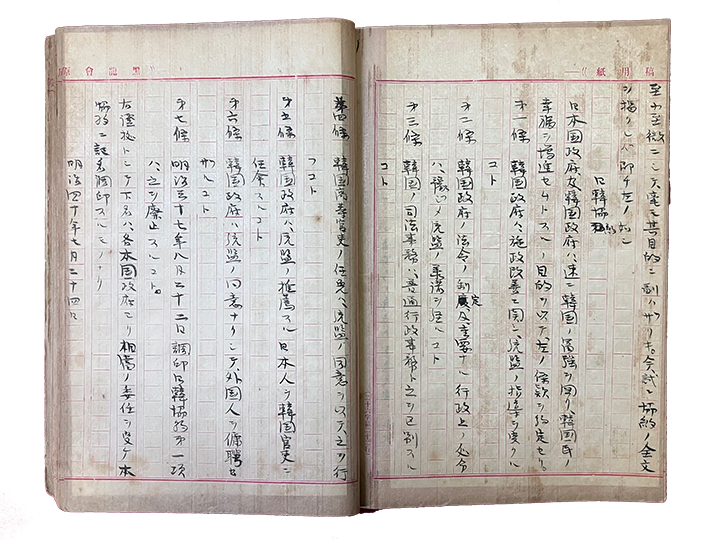 稿用紙
至小至微ニシテ毫モ其目的ニ副ハザリキ。今試ニ協約ノ全文
ヲ掲グレバ即チ左ノ如シ
日韓協約
日本国政府及韓国政府ハ速ニ韓国ノ富強ヲ図リ、韓国民ノ
幸福ヲ増進セムトスルノ目的ヲ以テ、左ノ條款ヲ約定セリ。
第一條 韓国政府ハ施政改善ニ関シ、統監ノ指導ヲ受クル
コト
第二條 韓国政府ノ法令ノ制定及重要ナル行政上ノ処分
ハ、豫メ統監ノ承認ヲ経ルコト
第三條 韓国ノ司法事務ハ普通行政事務ト之ヲ区別スル
コト
黒龍會
第四條 韓国高等官吏ノ任免ハ、統監ノ同意ヲ以テ、之ヲ行
フコト
第五條 韓国政府ハ、統監ノ推薦スル日本人ヲ韓国官吏ニ
任命スルコト
第六條 韓国政府ハ統監ノ同意ナクシテ、外国人ヲ傭聘セ
ザルコト
第七條 明治三十七年八月二十二日調印日韓協約第一項
ハ、之ヲ廃止スルコト。
右證拠トシテ下名ハ、各本国政府ヨリ相当ノ委任ヲ受ケ本
協約ニ記名調印スルモノナリ
明治四十年七月二十四日